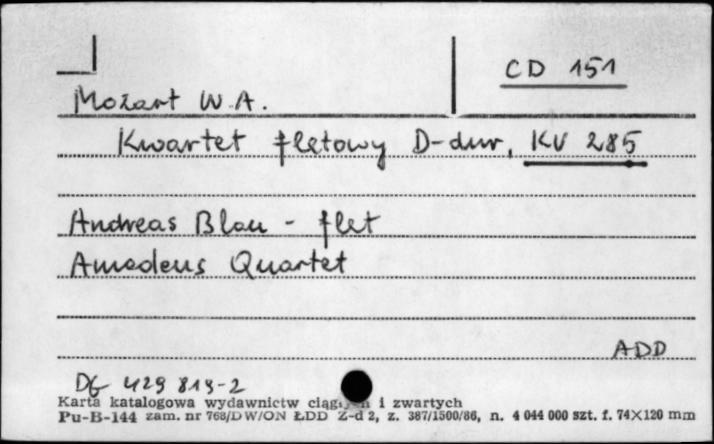 CD 151
Mozart W.A.
Kwartet fletowy D-dur, KV 285
Andreas Blau - flet
Amadeus Quartet
ADD
DG 429 819-2
Karta katalogowa wydawnictw i zwartych
Pu-B-144 zam. nr 768/DW/ON ŁDD Z-d 2, z. 387/1500/86, n. 4 044 000 szt. f. 74×120 mm